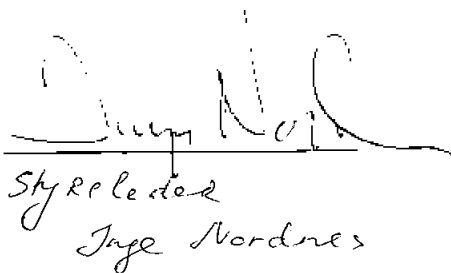 Styreleder
Inge Nordnes